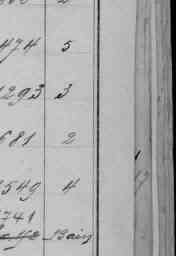 474 5
1293 3
681 2
549 4
741
Bain